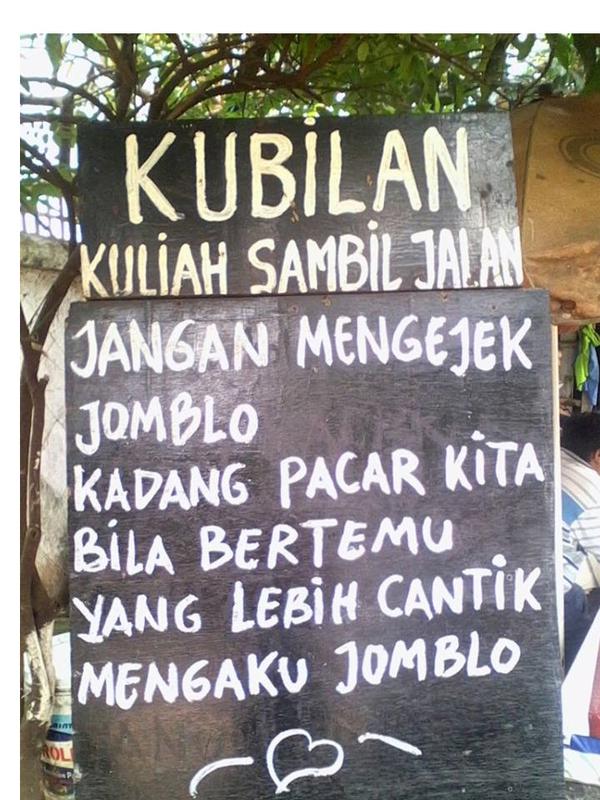 KUBiLAN
KULiAH SAMBiL JALAN
JANGAN MENGEJEK
JOMBLO
KADANG PACAR KiTA
BiLA BERTEMU
YANG LEBiH CANTiK
MENGAKU JOMBLO